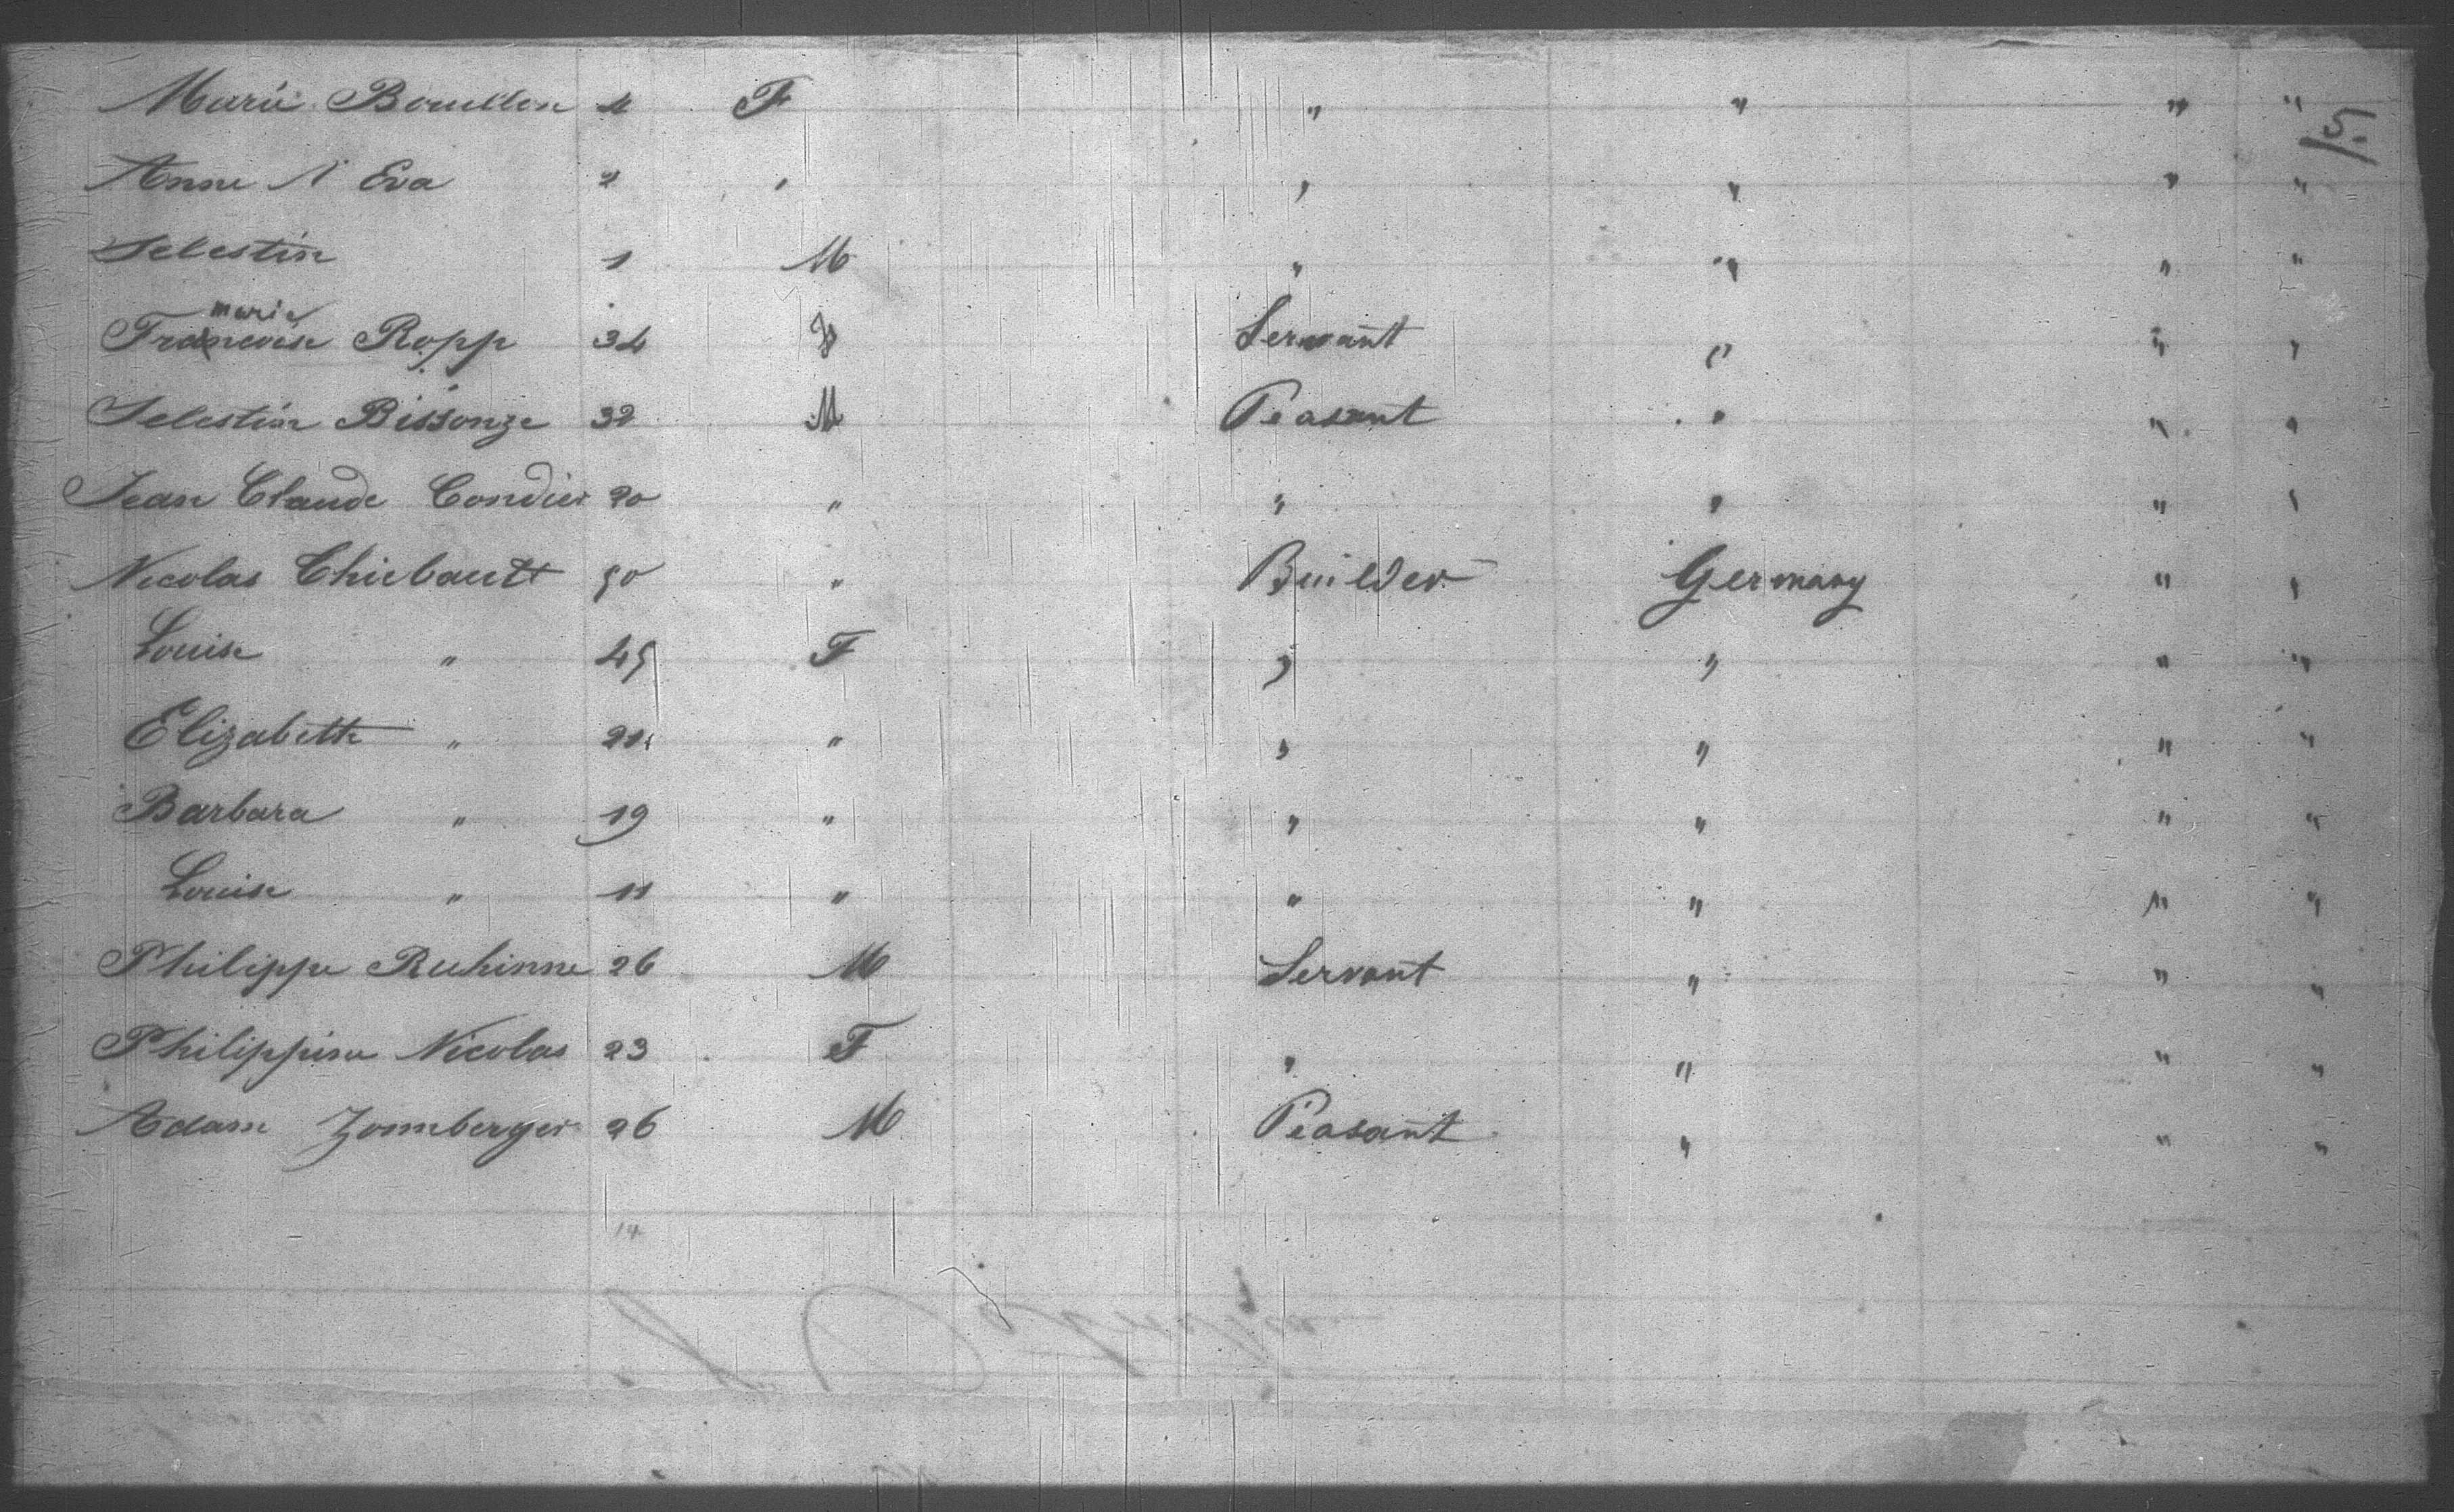 Marie Bouillon 4 F " " " "
5.
Anne N Eva 2 " " " " "
Selestin 1 M " " " "
marie
Francoise Ropp 34 F Servant " " "
Selestin Bissonze 32 M Peasant " " "
Jean Claude Condier 20 " " " " "
Nicolas Thiebautt 50 " Builder Germany " "
Louise " 45 F " " " "
Elizabeth " 21 " " " " "
Barbara " 19 " " " " "
Louise " 11 " " " " "
Philippe Ruhinne 26 M Servant " " "
Philippine Nicolas 23 F " " " "
Adam Zonnberger 26 M Peasant " " "
14